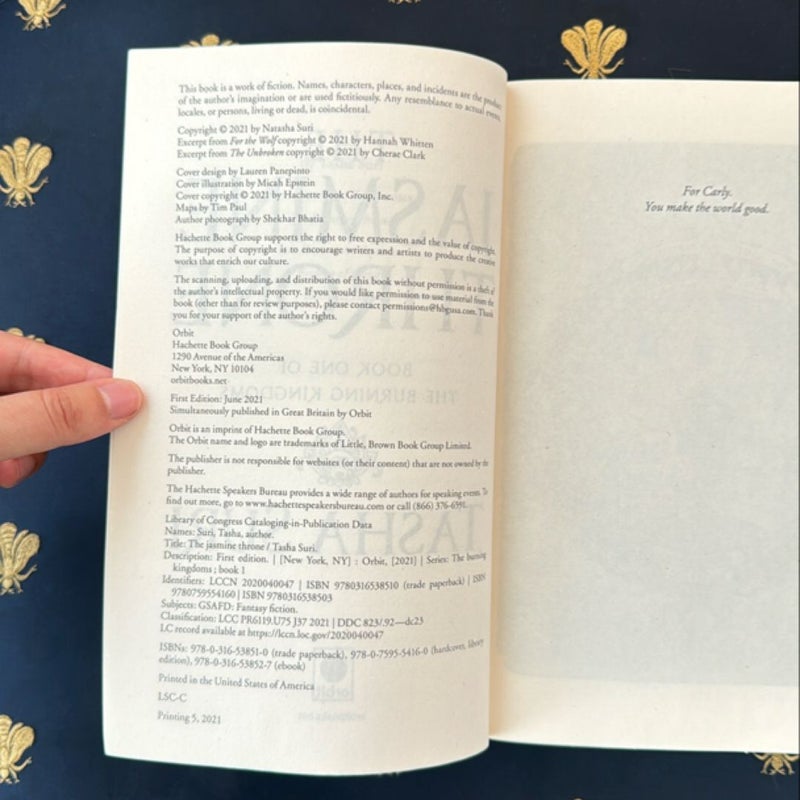 This book is a work of fiction. Names, characters, places, and incidents are the product
of the author's imagination or are used fictitiously. Any resemblance to actual events,
locales, or persons, living or dead, is coincidental.
Copyright © 2021 by Natasha Suri
Excerpt from For the Wolf copyright © 2021 by Hannah Whitten
Excerpt from The Unbroken copyright © 2021 by Cherae Clark
Cover design by Lauren Panepinto
Cover illustration by Micah Epstein
Cover copyright © 2021 by Hachette Book Group, Inc.
Maps by Tim Paul
Author photograph by Shekhar Bhatia
Hachette Book Group supports the right to free expression and the value of copyright.
The purpose of copyright is to encourage writers and artists to produce the creative
works that enrich our culture.
The scanning, uploading, and distribution of this book without permission is a theft of
the author's intellectual property. If you would like permission to use material from the
book (other than for review purposes), please contact permissions@hbgusa.com. Thank
you for your support of the author's rights.
Orbit
Hachette Book Group
1290 Avenue of the Americas
New York, NY 10104
orbitbooks.net
First Edition: June 2021
Simultaneously published in Great Britain by Orbit
Orbit is an imprint of Hachette Book Group.
The Orbit name and logo are trademarks of Little, Brown Book Group Limited.
The publisher is not responsible for websites (or their content) that are not owned by the
publisher.
The Hachette Speakers Bureau provides a wide range of authors for speaking events. To
find out more, go to www.hachettespeakersbureau.com or call (866) 376-6591.
Library of Congress Cataloging-in-Publication Data
Names: Suri, Tasha, author.
Title: The jasmine throne / Tasha Suri.
Description: First edition. | [New York, NY] : Orbit, [2021] | Series: The burning
kingdoms ; book 1
Identifiers: LCCN 2020040047 | ISBN 9780316538510 (trade paperback) | ISBN
9780759554160 | ISBN 9780316538503
Subjects: GSAFD: Fantasy fiction.
Classification: LCC PR6119.U75 J37 2021 | DDC 823/.92—dc23
LC record available at https://lccn.loc.gov/2020040047
ISBNs: 978-0-316-53851-0 (trade paperback), 978-0-7595-5416-0 (hardcover, library
edition), 978-0-316-53852-7 (ebook)
Printed in the United States of America
LSC-C
Printing 5, 2021
For Carly.
You make the world good.